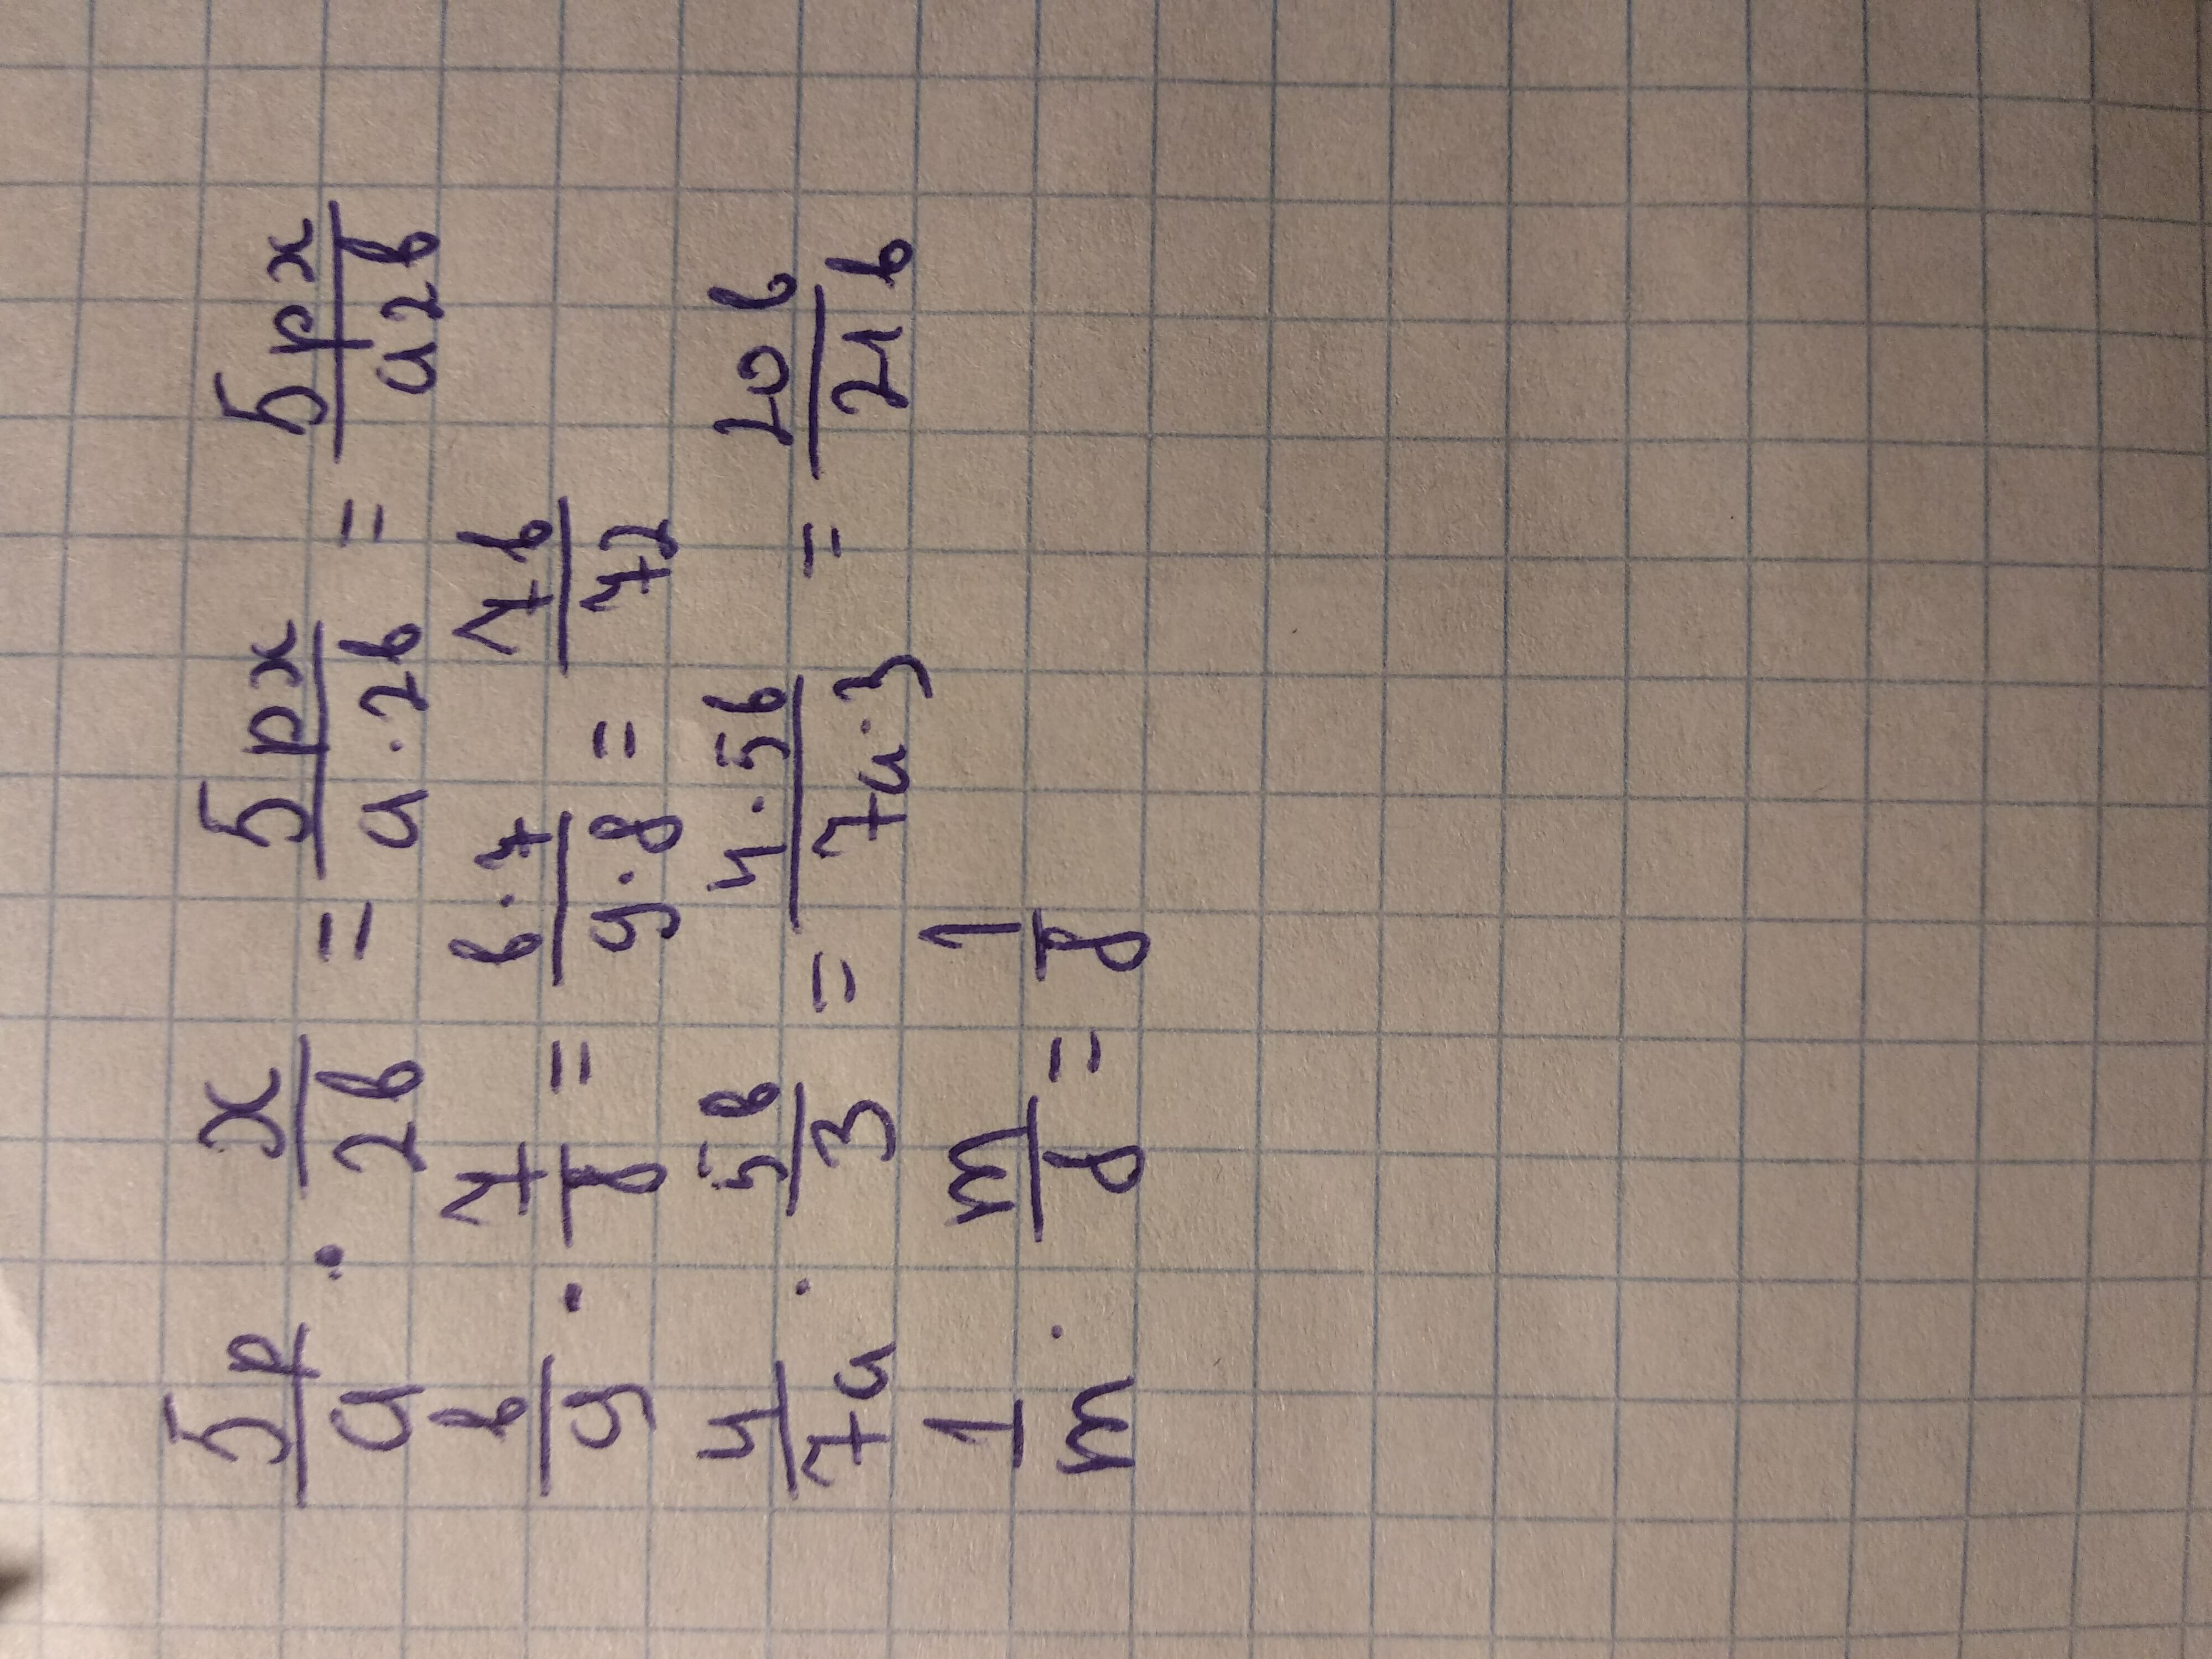 5p/a · x/2b = 5px/a·2b = 5px/a2b
b/9 · 7/8 = b·7/9·8 = 7b/72
4/7a · 5b/3 = 4·5b/7a·3 = 20b/21b
1/m · m/8 = 1/8